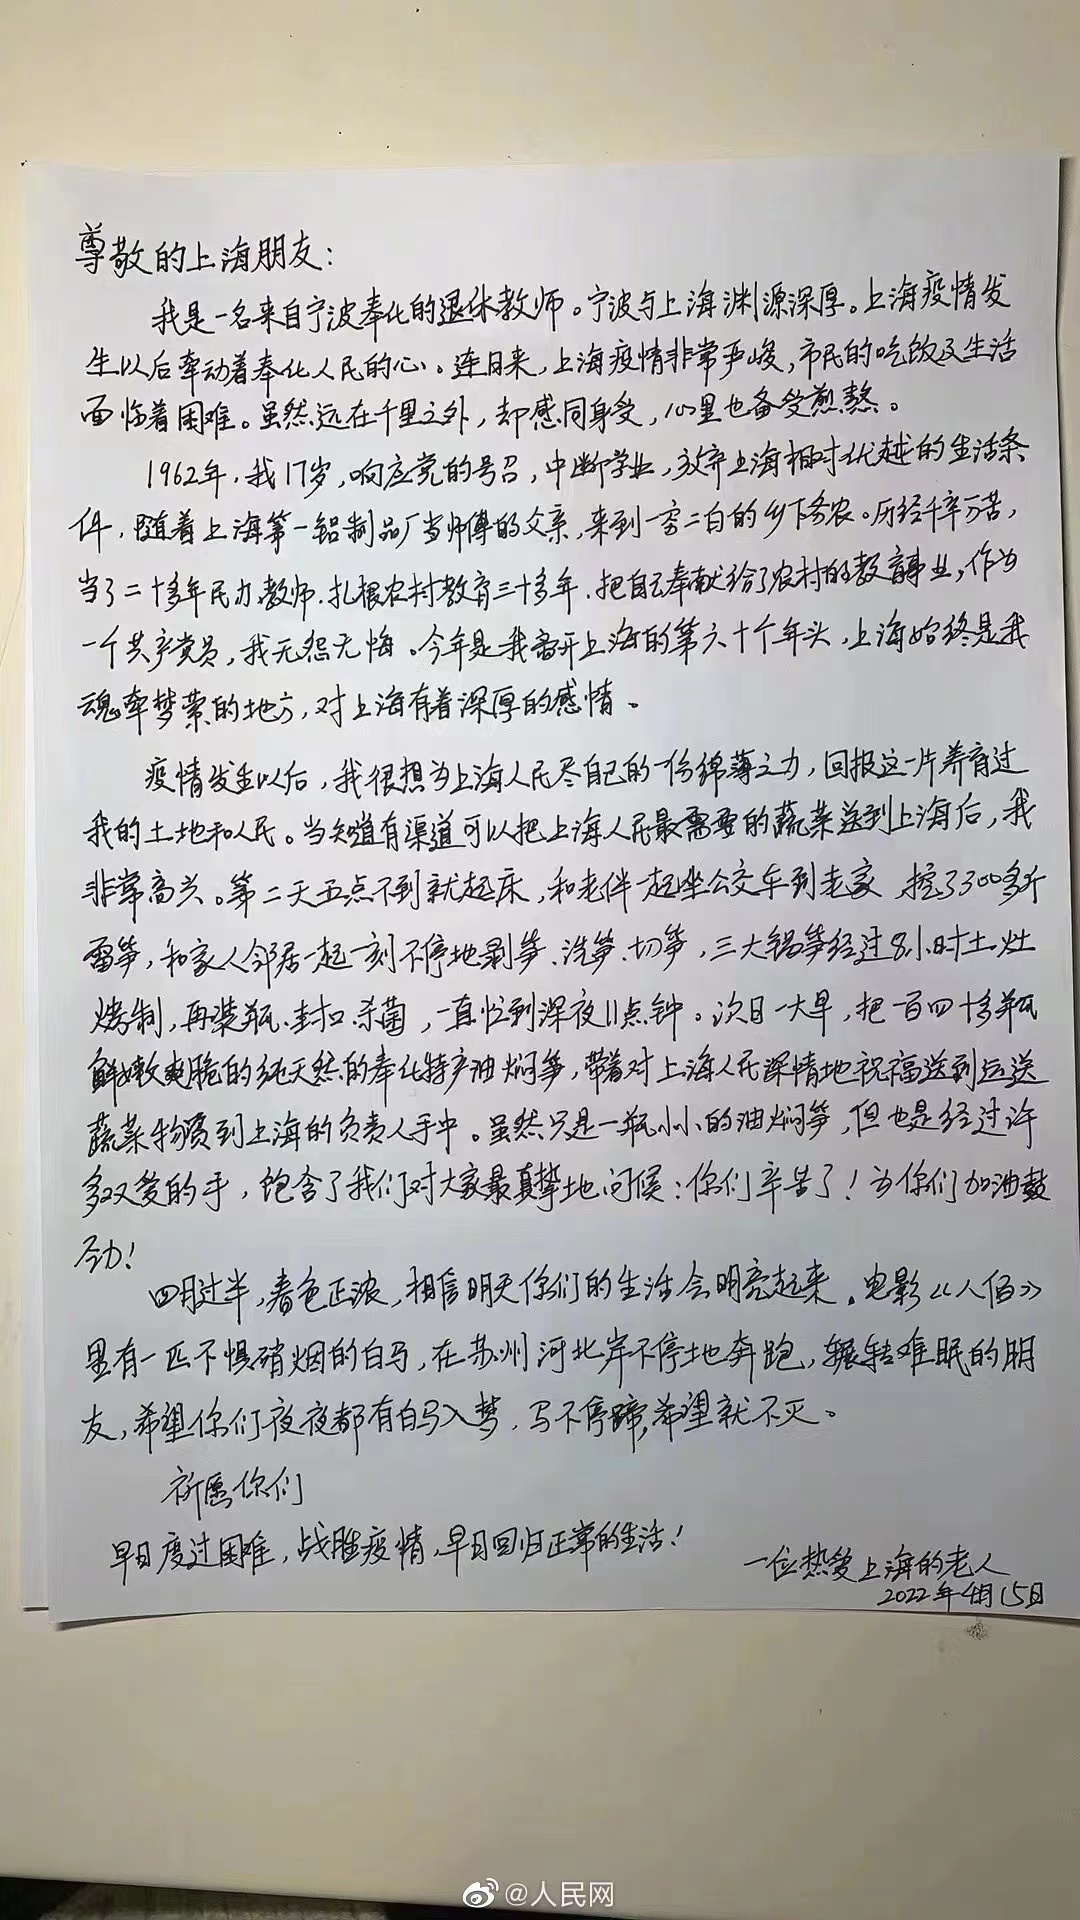 尊敬的上海朋友：
我是一名来自宁波奉化的退休教师。宁波与上海渊源深厚。上海疫情发
生以后牵动着奉化人民的心。连日来，上海疫情非常严峻，市民的吃饭及生活
面临着困难。虽然远在千里之外，却感同身受，心里也备受煎熬。
1962年，我17岁，响应党的号召，中断学业，放弃上海相对优越的生活条
件，随着上海第一铝制品厂当师傅的父亲，来到一穷二白的乡下务农。历经千辛万苦，
当了二十多年民办教师，扎根农村教育三十多年，把自己奉献给了农村的教育事业，作为
一个共产党员，我无怨无悔。今年是我离开上海的第六十个年头，上海始终是我
魂牵梦萦的地方，对上海有着深厚的感情。
疫情发生以后，我很想为上海人民尽自己的一份绵薄之力，回报这一片养育过
我的土地和人民。当知道有渠道可以把上海人民最需要的蔬菜送到上海后，我
非常高兴。第二天五点不到就起床，和老伴一起坐公交车到老家 挖了300多斤
雷笋，和家人邻居一起一刻不停地剥笋、洗笋、切笋，三大锅笋经过8小时土灶
烤制，再装瓶、封口、杀菌，一直忙到深夜11点钟。次日一大早，把一百四十多瓶
鲜嫩爽脆的纯天然的奉化特产油焖笋，带着对上海人民深情地祝福送到运送
蔬菜物资到上海的负责人手中。虽然只是一瓶小小的油焖笋，但也是经过许
多双爱的手，饱含了我们对大家最真挚地问候：你们辛苦了！为你们加油鼓
劲！
四月过半，春色正浓，相信明天你们的生活会明亮起来。电影《八佰》
里有一匹不惧硝烟的白马，在苏州河北岸不停地奔跑，辗转难眠的朋
友，希望你们夜夜都有白马入梦，马不停蹄，希望就不灭。
祈愿你们
早日度过困难，战胜疫情，早日回归正常的生活！
一位热爱上海的老人
2022年4月15日
@人民网